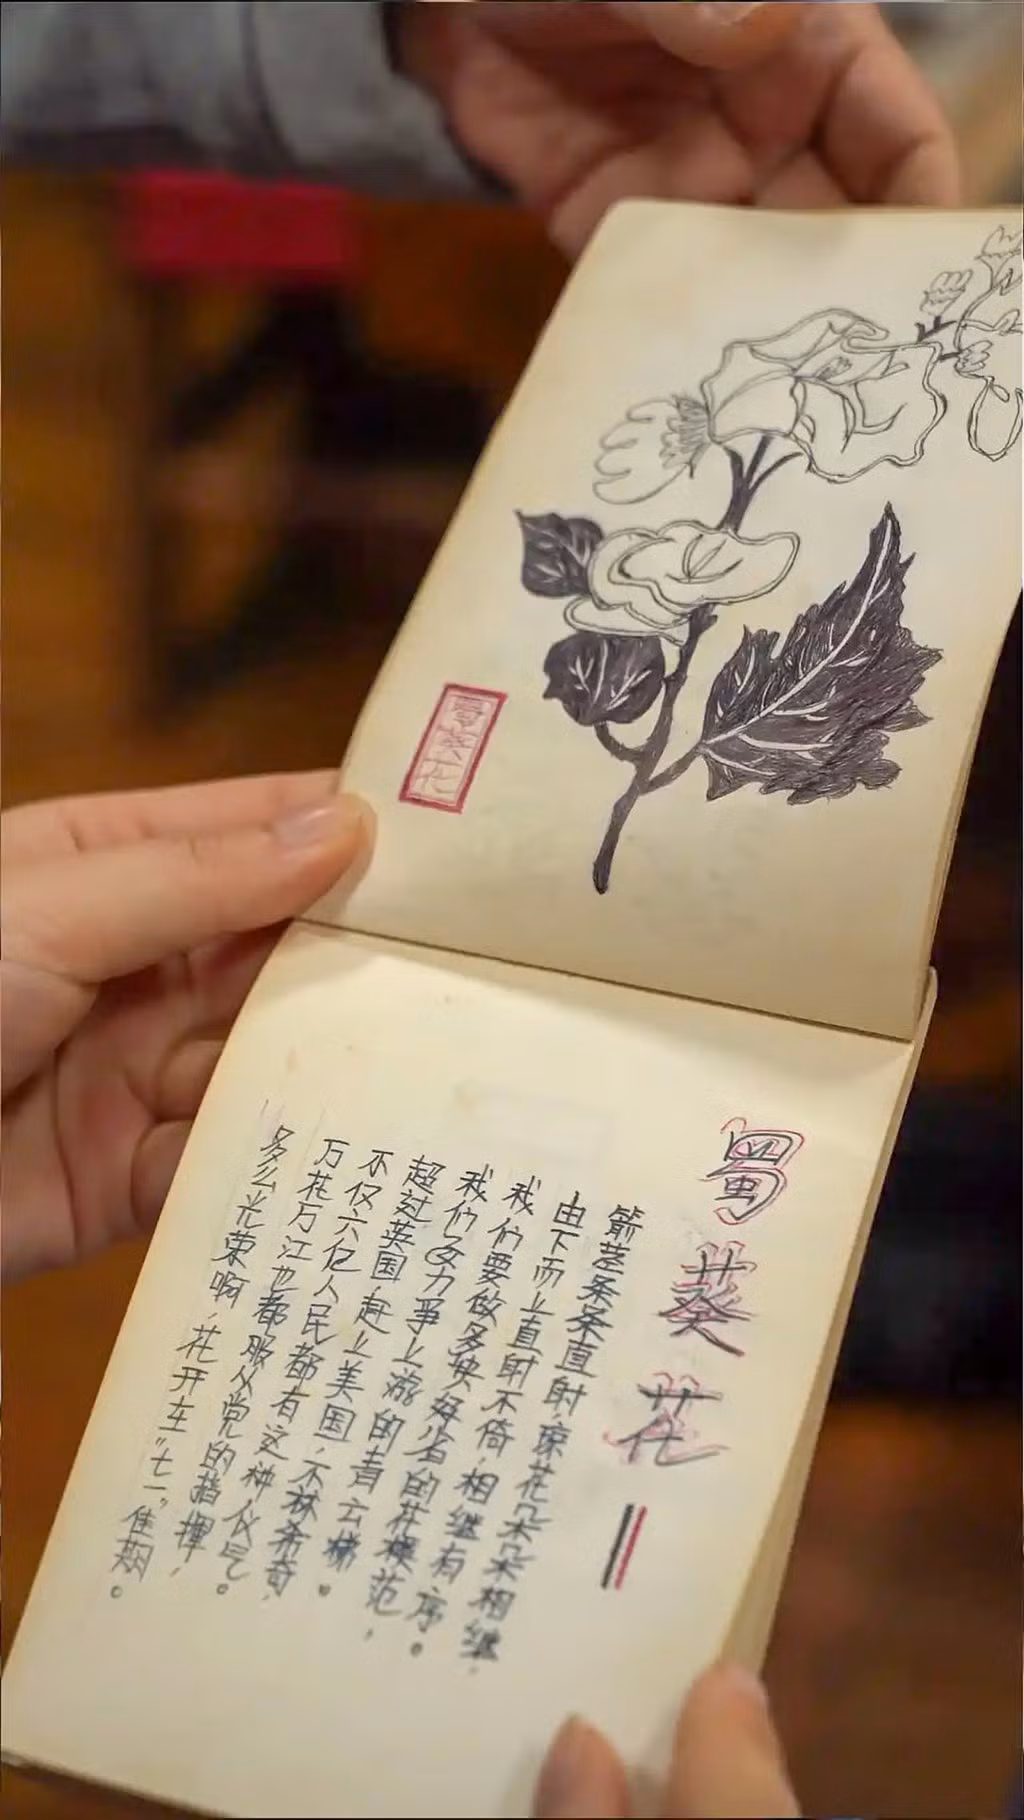 蜀葵花
蜀葵花
箭茎条条直射,琼花朵朵相继,
由下而上直射不倚,相继有序。
我们要做多快好省的花模范,
我们力争上游的青云梯。
超过英国,赶上美国,不林希奇,
不仅六亿人民都有这种仪气。
万花万江也都服从党的指揮,
多么光荣啊,花开在“七一”佳期。